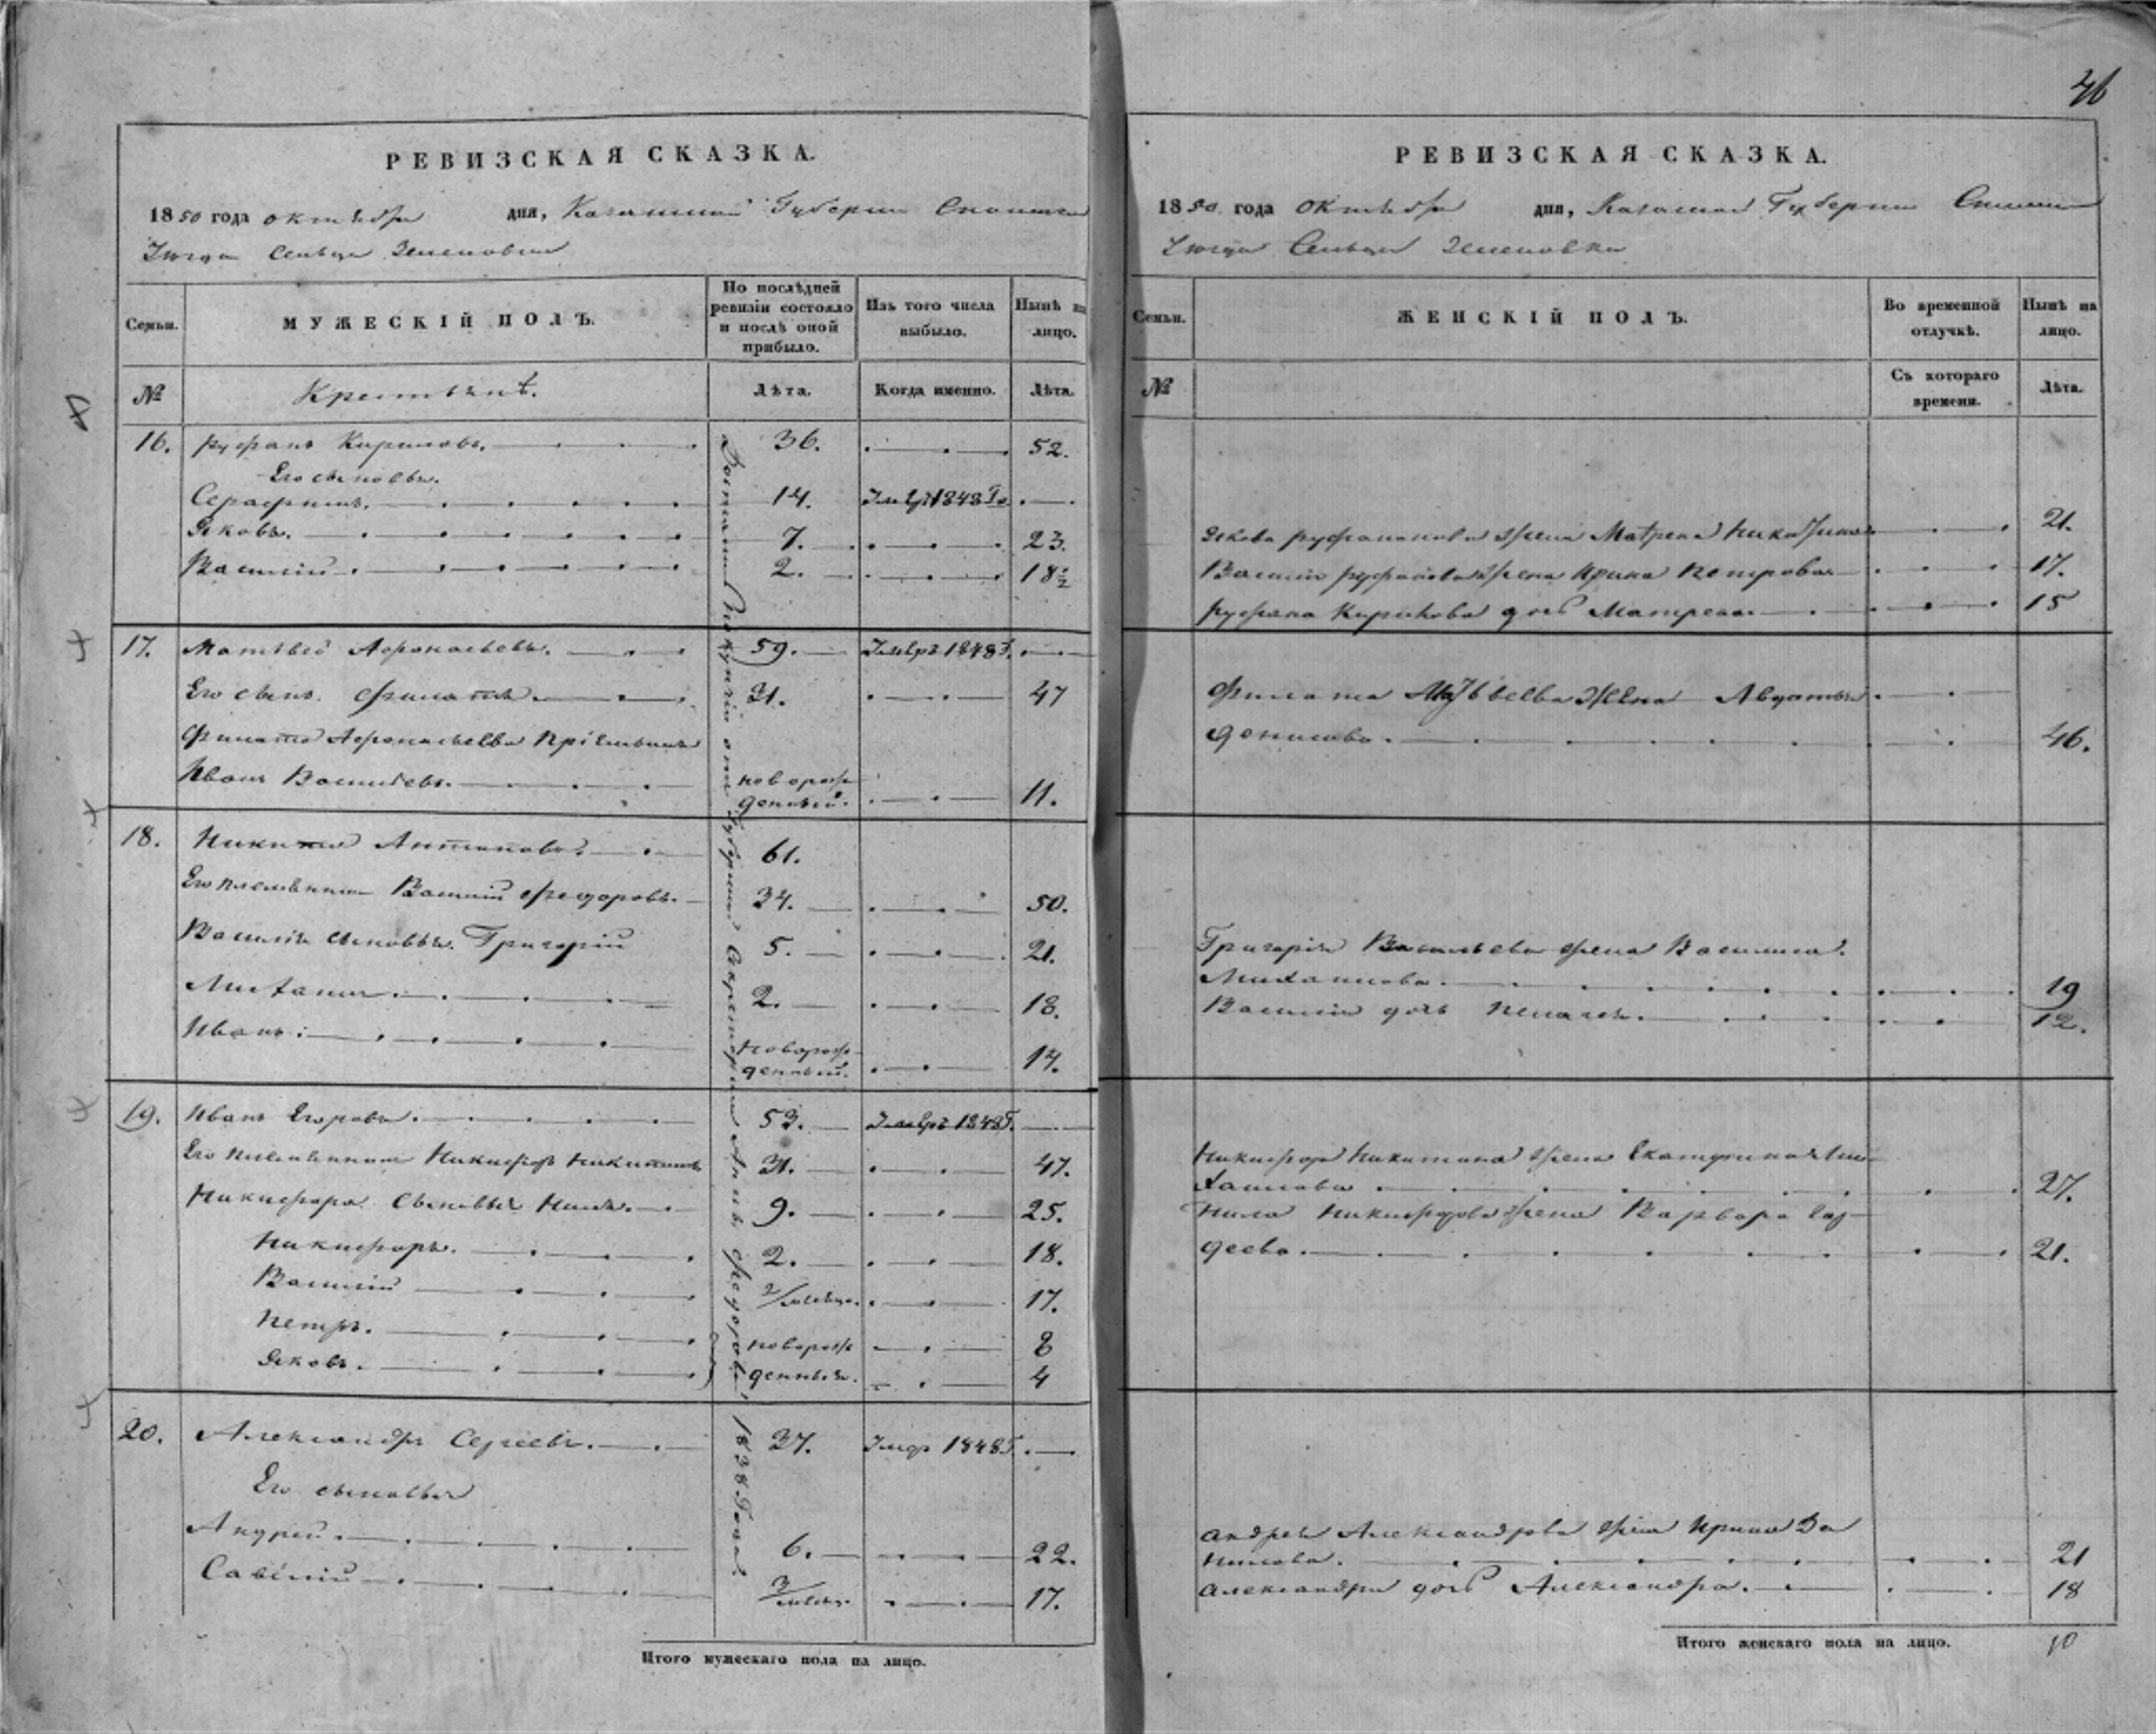 46
РЕВИЗСКАЯ СКАЗКА.
1850 года октября дня, Казанской Губернии Спасскаго
Уѣзда Сельца Зеленовки
Семьи.
МУЖЕСКІЙ ПОЛЪ.
По послѣдней ревизіи состояло и послѣ оной прибыло.
Изъ того числа выбыло.
Нынѣ на лицо.
№
Крестьянѣ.
Лѣта.
Когда именно.
Лѣта.
16. Руфанъ Кириловъ. 36. 52.
Его сыновья.
Серафимъ. 14. 1848
Яковъ. 7. 23.
Василій 2. 18 1/2
17. Матвѣй Афонасьевъ. 59. 1848
Его сынъ Филатъ 31. 47
Филата Афонасьева пріемышъ
Иванъ Васильевъ. новорожденный. 11.
18. Никита Антоновъ. 61.
Его племянникъ Василій Федоровъ. 34. 50.
Василія сыновья. Григорій 5. 21.
Михаилъ 2. 18.
Иванъ новорожденный. 14.
19. Иванъ Егоровъ. 53. 1848
Его племянникъ Никифоръ Никитинъ 31. 47.
Никифора сыновья Нилъ 9. 25.
Никифоръ. 2. 18.
Василій 2/месяца. 17.
Петръ. новорож 8
Яковъ. денныя. 4
20. Александръ Сергеевъ. 37. 1848
Его сыновья
Андрей 6. 22.
Савелій 3/месяц. 17.
Федоровой 1838 Года
Итого мужескаго пола на лицо.
РЕВИЗСКАЯ СКАЗКА.
1850 года октября дня, Казанской Губернии Спасскаго
Уѣзда Сельца Зеленовки
Семьи.
ЖЕНСКІЙ ПОЛЪ.
Во временной отлучкѣ.
Нынѣ на лицо.
№
Съ котораго времени.
Лѣта.
Якова Руфанова жена Матрена 21.
Василія Руфанова жена Ирина Петрова 17.
Руфана Кирилова дочь Матрена 15
Филата Матвѣева жена Авдотья
Денисова. 46.
Григорія Васильева жена Василиса
Михаилова 19
Василія дочь Пелагея. 12.
Никифора Никитина жена Екатерина Ми
хаилова 27.
Нила Никифорова жена Варвара
деева. 21.
Андрея Александрова жена Ирина Да
нилова. 21
Александра дочь Александра. 18
Итого женскаго пола на лицо. 10